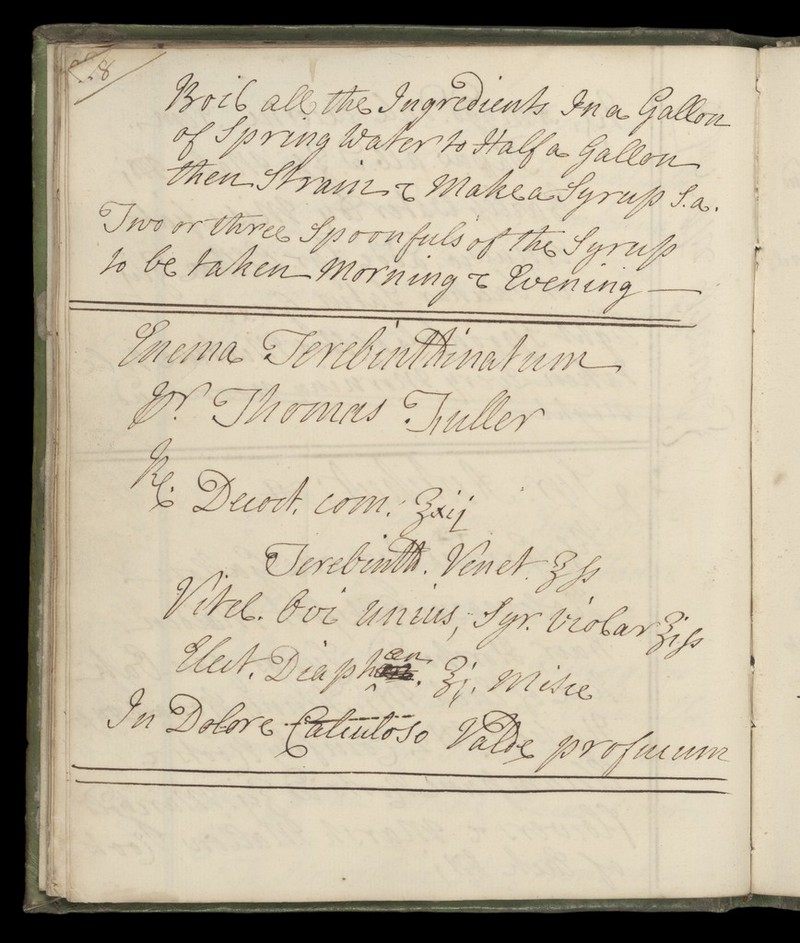 228
Boil all the Ingredients In a Gallon
of Spring Water to Half a Gallon
then Strain & Make a Syrup S.a.
Two or three Spoonfuls of the Syrup
to be taken Morning & Evening —
Enema Terebinthinatum
Dr. Thomas Fuller
Rx. Decoct. com. ℥xij
Terebinth. Venet. ℥ss
Vitel. Ovi Unius, Syr. Violar ℥iss
Elect. Diaphœn. ℥j. Misce
In Dolore Calculoso Valde proficuum